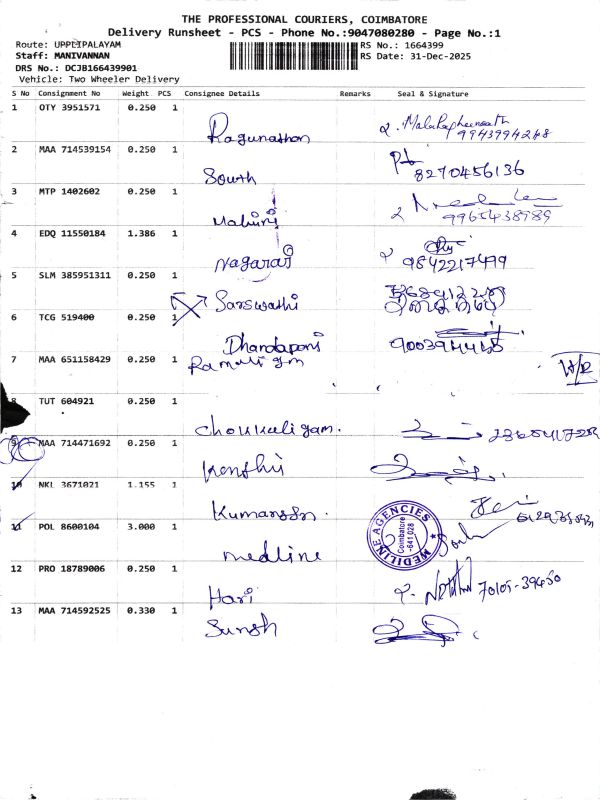 THE PROFESSIONAL COURIERS, COIMBATORE
Delivery Runsheet - PCS - Phone No.:9047080280 - Page No.:1
Route: UPPLIPALAYAM
RS No.: 1664399
Staff: MANIVANNAN
RS Date: 31-Dec-2025
DRS No.: DCJB166439901
Vehicle: Two Wheeler Delivery
S No Consignment No Weight PCS Consignee Details Remarks Seal & Signature
1 OTY 3951571 0.250 1
Ragunathan 9943994248
2 MAA 714539154 0.250 1
South 8270456136
3 MTP 1402602 0.250 1
Mahinj 9965438989
4 EDQ 11550184 1.386 1
Nagaraj 9842217499
5 SLM 385951311 0.250 1
Sarswathi
6 TCG 519400 0.250 1
Dhandapani
7 MAA 651158429 0.250 1
8 TUT 604921 0.250 1
Choukaligam.
9 MAA 714471692 0.250 1
10 NKL 3671021 1.155 1
11 POL 8600104 3.000 1
medline
MEDILINE AGENCIES
Coimbatore
-641 028
12 PRO 18789006 0.250 1
Hari
13 MAA 714592525 0.330 1